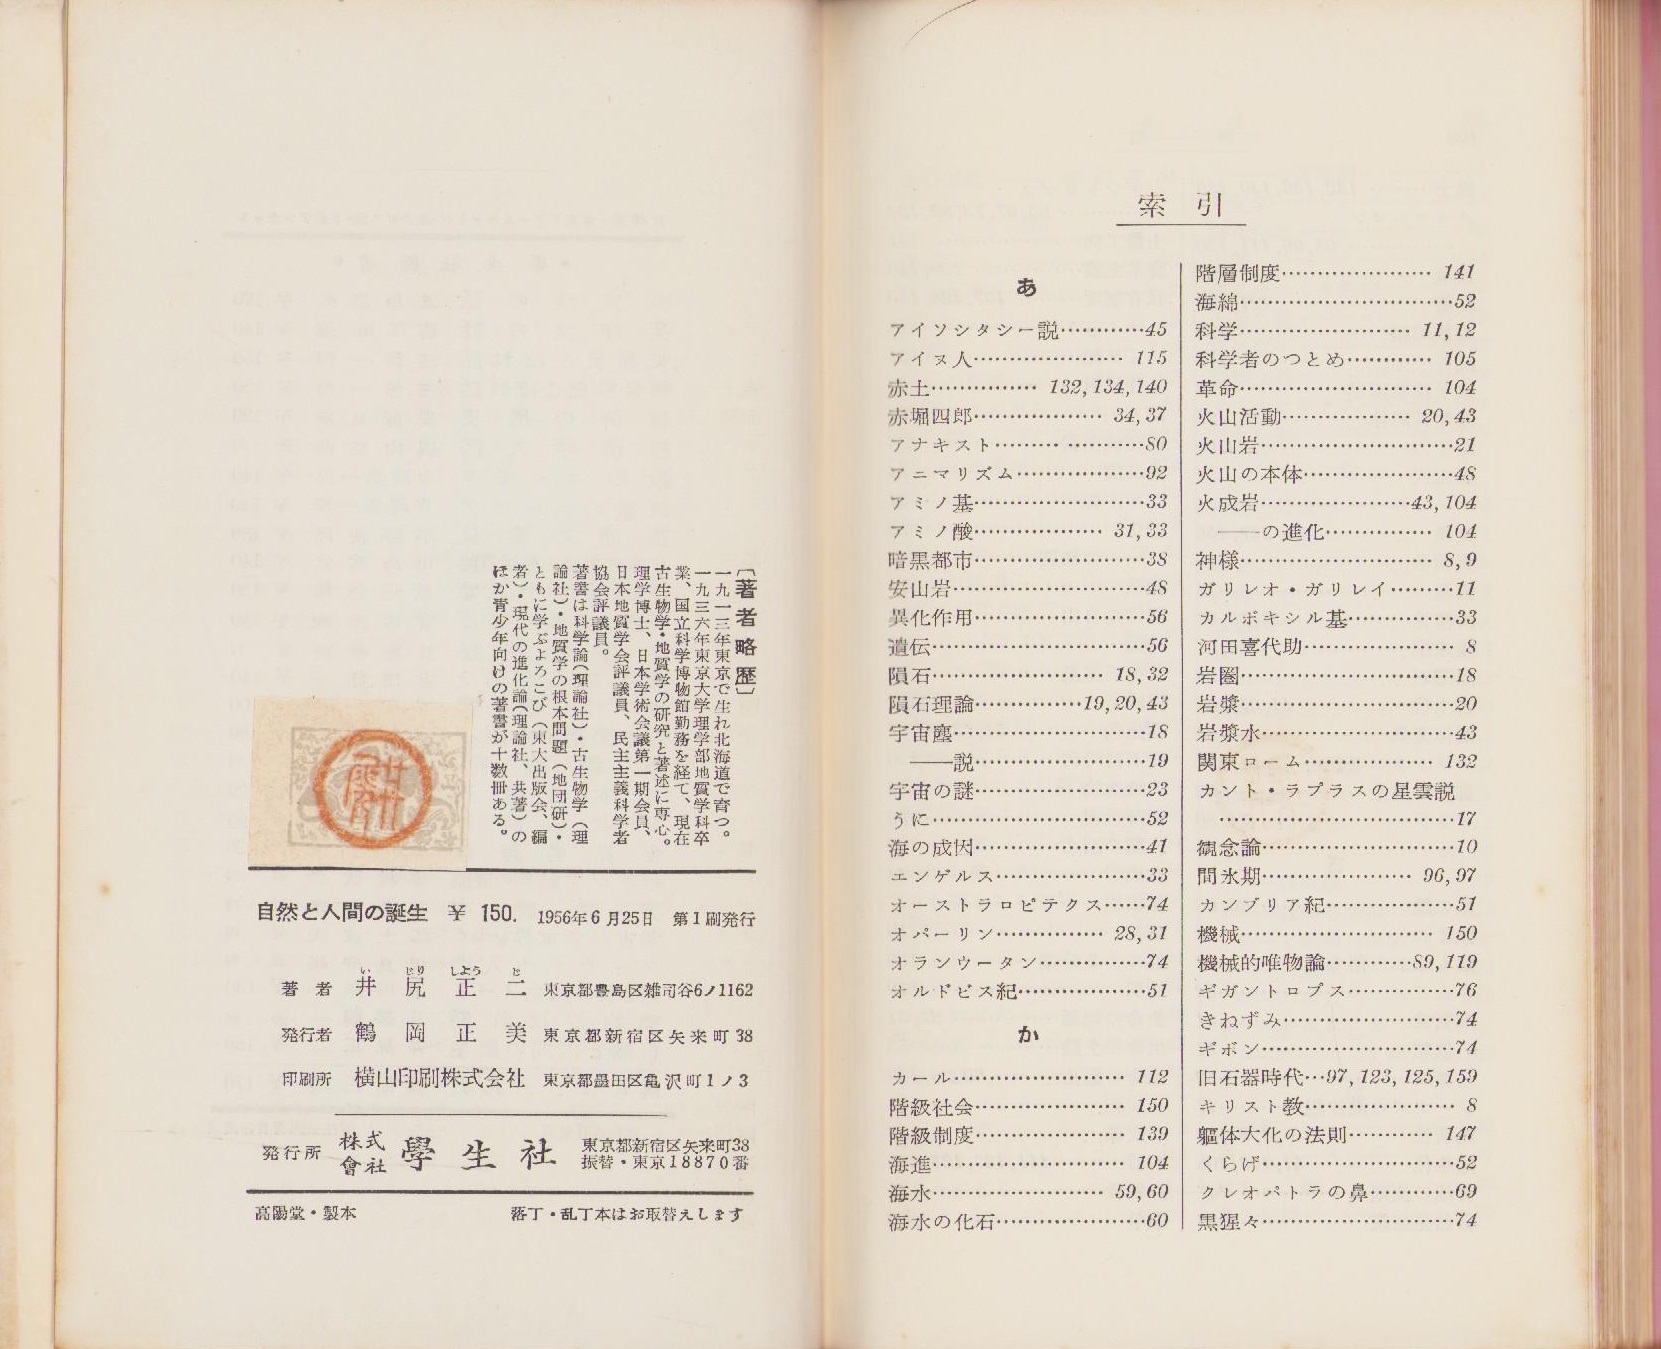 〔著者略歴〕
一九一三年東京で生れ北海道で育つ。
一九三六年東京大学理学部地質学科卒
業、国立科学博物館勤務を経て、現在
古生物学・地質学の研究と著述に専心。
理学博士、日本学術会議第一期会員、
日本地質学会評議員、民主主義科学者
協会評議員。
著書は科学論(理論社)・古生物学(理
論社)・地質学の根本問題(地団研)・
ともに学ぶよろこび(東大出版会、編
者)・現代の進化論(理論社、共著)の
ほか青少年向けの著書が十数冊ある。
自然と人間の誕生 ¥ 150. 1956年6月25日 第1刷発行
い じり しよう じ
著者 井尻正二 東京都豊島区雑司谷6ノ1162
発行者 鶴岡正美 東京都新宿区矢来町38
印刷所 横山印刷株式会社 東京都墨田区亀沢町1ノ3
発行所 株式會社 學生社 東京都新宿区矢来町38
振替・東京18870番
高陽堂・製本 落丁・乱丁本はお取替えします
索引
あ
アイソシタシー説…………45
アイヌ人………………… 115
赤土…………… 132, 134, 140
赤堀四郎……………… 34, 37
アナキスト……… …………80
アニマリズム………………92
アミノ基……………………33
アミノ酸……………… 31, 33
暗黒都市……………………38
安山岩………………………48
異化作用……………………56
遺伝…………………………56
隕石…………………… 18, 32
隕石理論……………19, 20, 43
宇宙塵………………………18
――説……………………19
宇宙の謎……………………23
うに…………………………52
海の成因……………………41
エンゲルス…………………33
オーストラロピテクス……74
オパーリン…………… 28, 31
オランウータン……………74
オルドビス紀………………51
か
カール…………………… 112
階級社会………………… 150
階級制度………………… 139
海進……………………… 104
海水…………………… 59, 60
海水の化石…………………60
階層制度………………… 141
海綿…………………………52
科学…………………… 11, 12
科学者のつとめ………… 105
革命……………………… 104
火山活動……………… 20, 43
火山岩………………………21
火山の本体…………………48
火成岩…………………43, 104
――の進化…………… 104
神様……………………… 8, 9
ガリレオ・ガリレイ………11
カルボキシル基……………33
河田喜代助……………… 8
岩圏…………………………18
岩漿…………………………20
岩漿水………………………43
関東ローム……………… 132
カント・ラプラスの星雲説
…………………………17
観念論………………………10
間氷期………………… 96, 97
カンブリア紀………………51
機械……………………… 150
機械的唯物論…………89, 119
ギガントロプス……………76
きねずみ……………………74
ギボン………………………74
旧石器時代…97, 123, 125, 159
キリスト教……………… 8
軀体大化の法則………… 147
くらげ………………………52
クレオパトラの鼻…………69
黒猩々………………………74